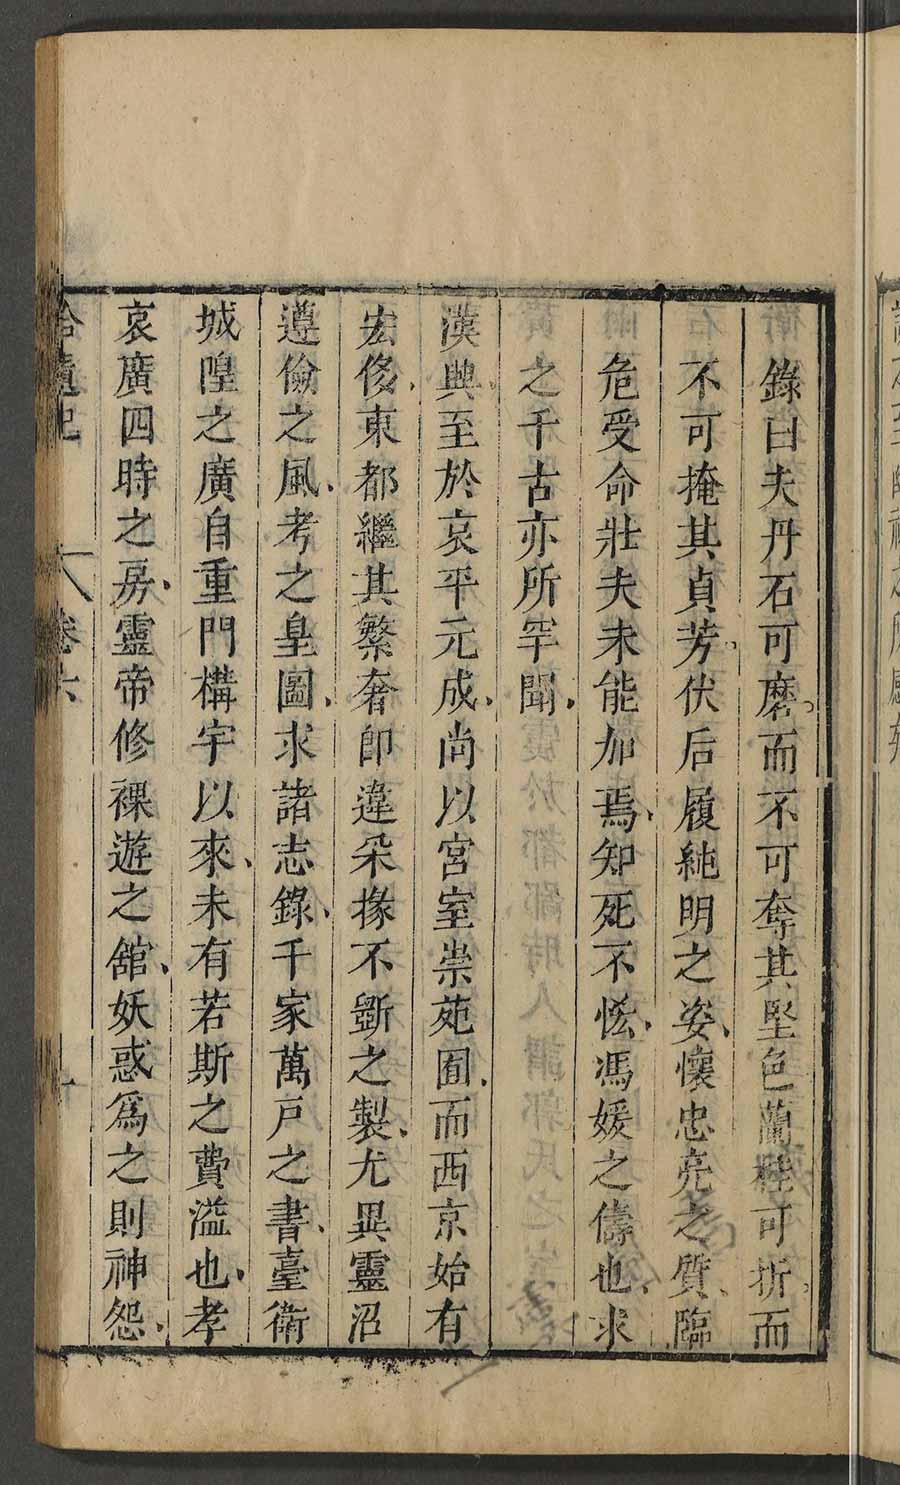 錄曰夫丹石可磨而不可奪其堅色蘭桂可折而
不可掩其貞芳伏后履純明之姿懷忠亮之質臨
危受命壯夫未能加焉知死不恡馮媛之儔也求
之千古亦所罕聞
漢興至於哀平元成尚以宮室崇苑囿而西京始有
宏侈東都繼其繁奢即違采椽不斵之製尤異靈沼
遵儉之風考之皇圖求諸志錄千家萬戶之書臺衛
城隍之廣自重門構宇以來未有若斯之費溢也孝
哀廣四時之房靈帝修裸遊之館妖惑爲之則神怨
拾遺記 卷六